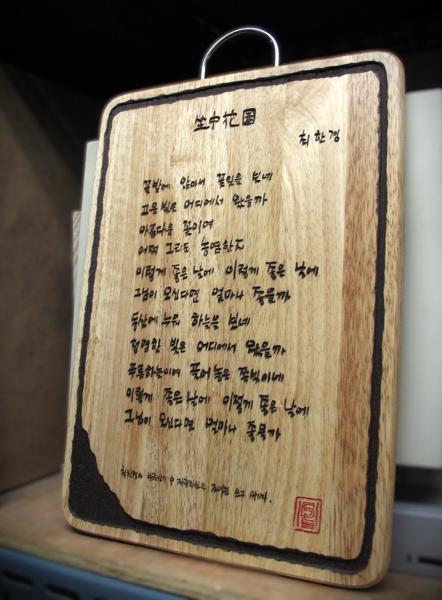 坐中花園
최한경
꽃밭에 앉아서 꽃잎을 보네
고운 빛은 어디에서 왔을까
아름다운 꽃이며
어쩌 그리도 농염한지
이렇게 좋은 날에 이렇게 좋은 날에
그님이 오신다면 얼마나 좋을까
동산에 누워 하늘을 보네
청명한 빛은 어디에서 왔을까
푸른하늘이여 풀어놓은 쪽빛이네
이렇게 좋은날에 이렇게 좋은 날에
그님이 오신다면 얼마나 좋을까